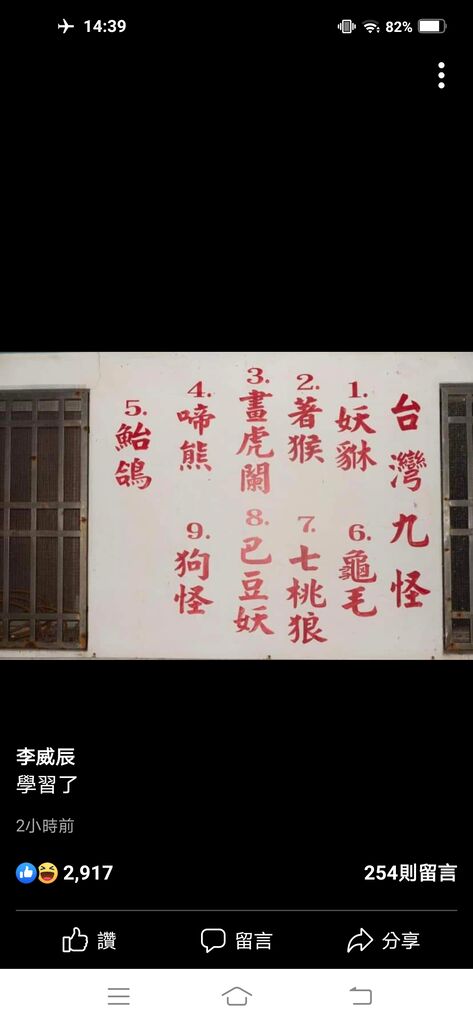 14:39
82%
台灣九怪
1.妖貅
2.著猴
3.畫虎闌
4.啼熊
5.鮐鴿
6.龜毛
7.七桃狼
8.巴豆妖
9.狗怪
李威辰
學習了
2小時前
2,917
254則留言
讚
留言
分享